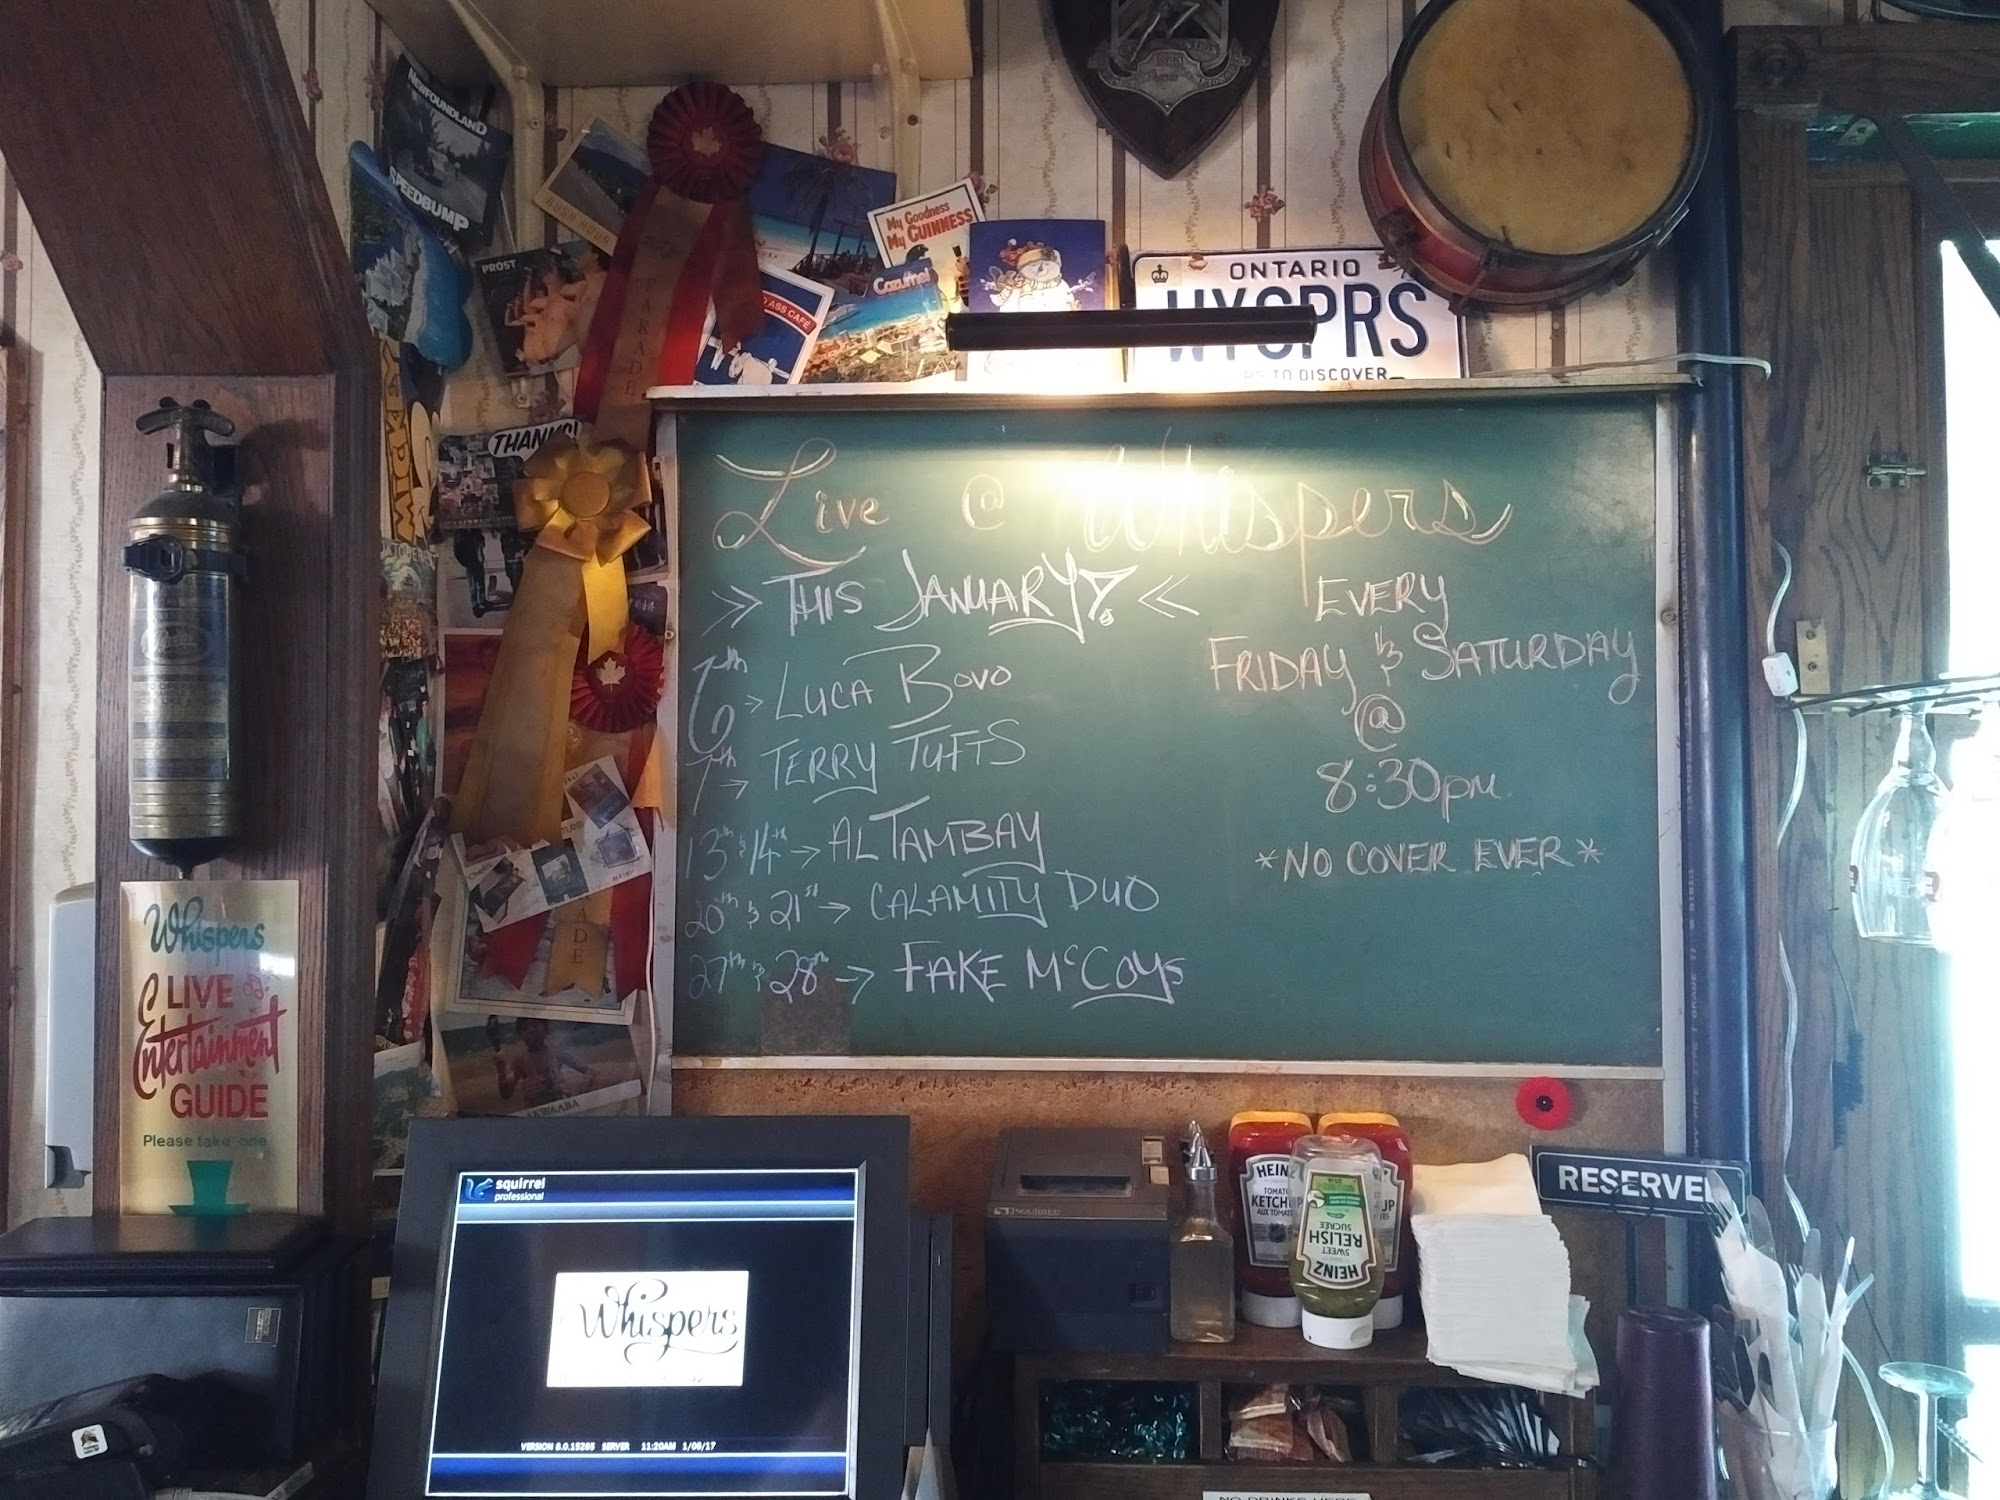 NEWFOUNDLAND
SPEEDBUMP
RUSH HOUR
PROST
My Goodness
My GUINNESS
Cozumel
ASS CAFÉ
PARADE
THANKS!
ONTARIO
WYGPRS
TO DISCOVER
Live @ Whispers
>> THIS JANUARY! <<
6th -> LUCA BOVO
7th -> TERRY TUFTS
13th & 14th -> AL TAMBAY
20th & 21st -> CALAMITY DUO
27th & 28th -> FAKE McCOYs
EVERY
FRIDAY & SATURDAY
@
8:30pm
*NO COVER EVER*
Whispers
LIVE
Entertainment
GUIDE
Please take one
AKWAABA
squirrel
professional
Whispers
VERSION 8.0.15265 SERVER 11:20AM 1/08/17
SQUIRREL
HEINZ
TOMATO
KETCHUP
HEINZ
SWEET
RELISH
SUCRÉE
RESERVED
NO DRINKS HERE